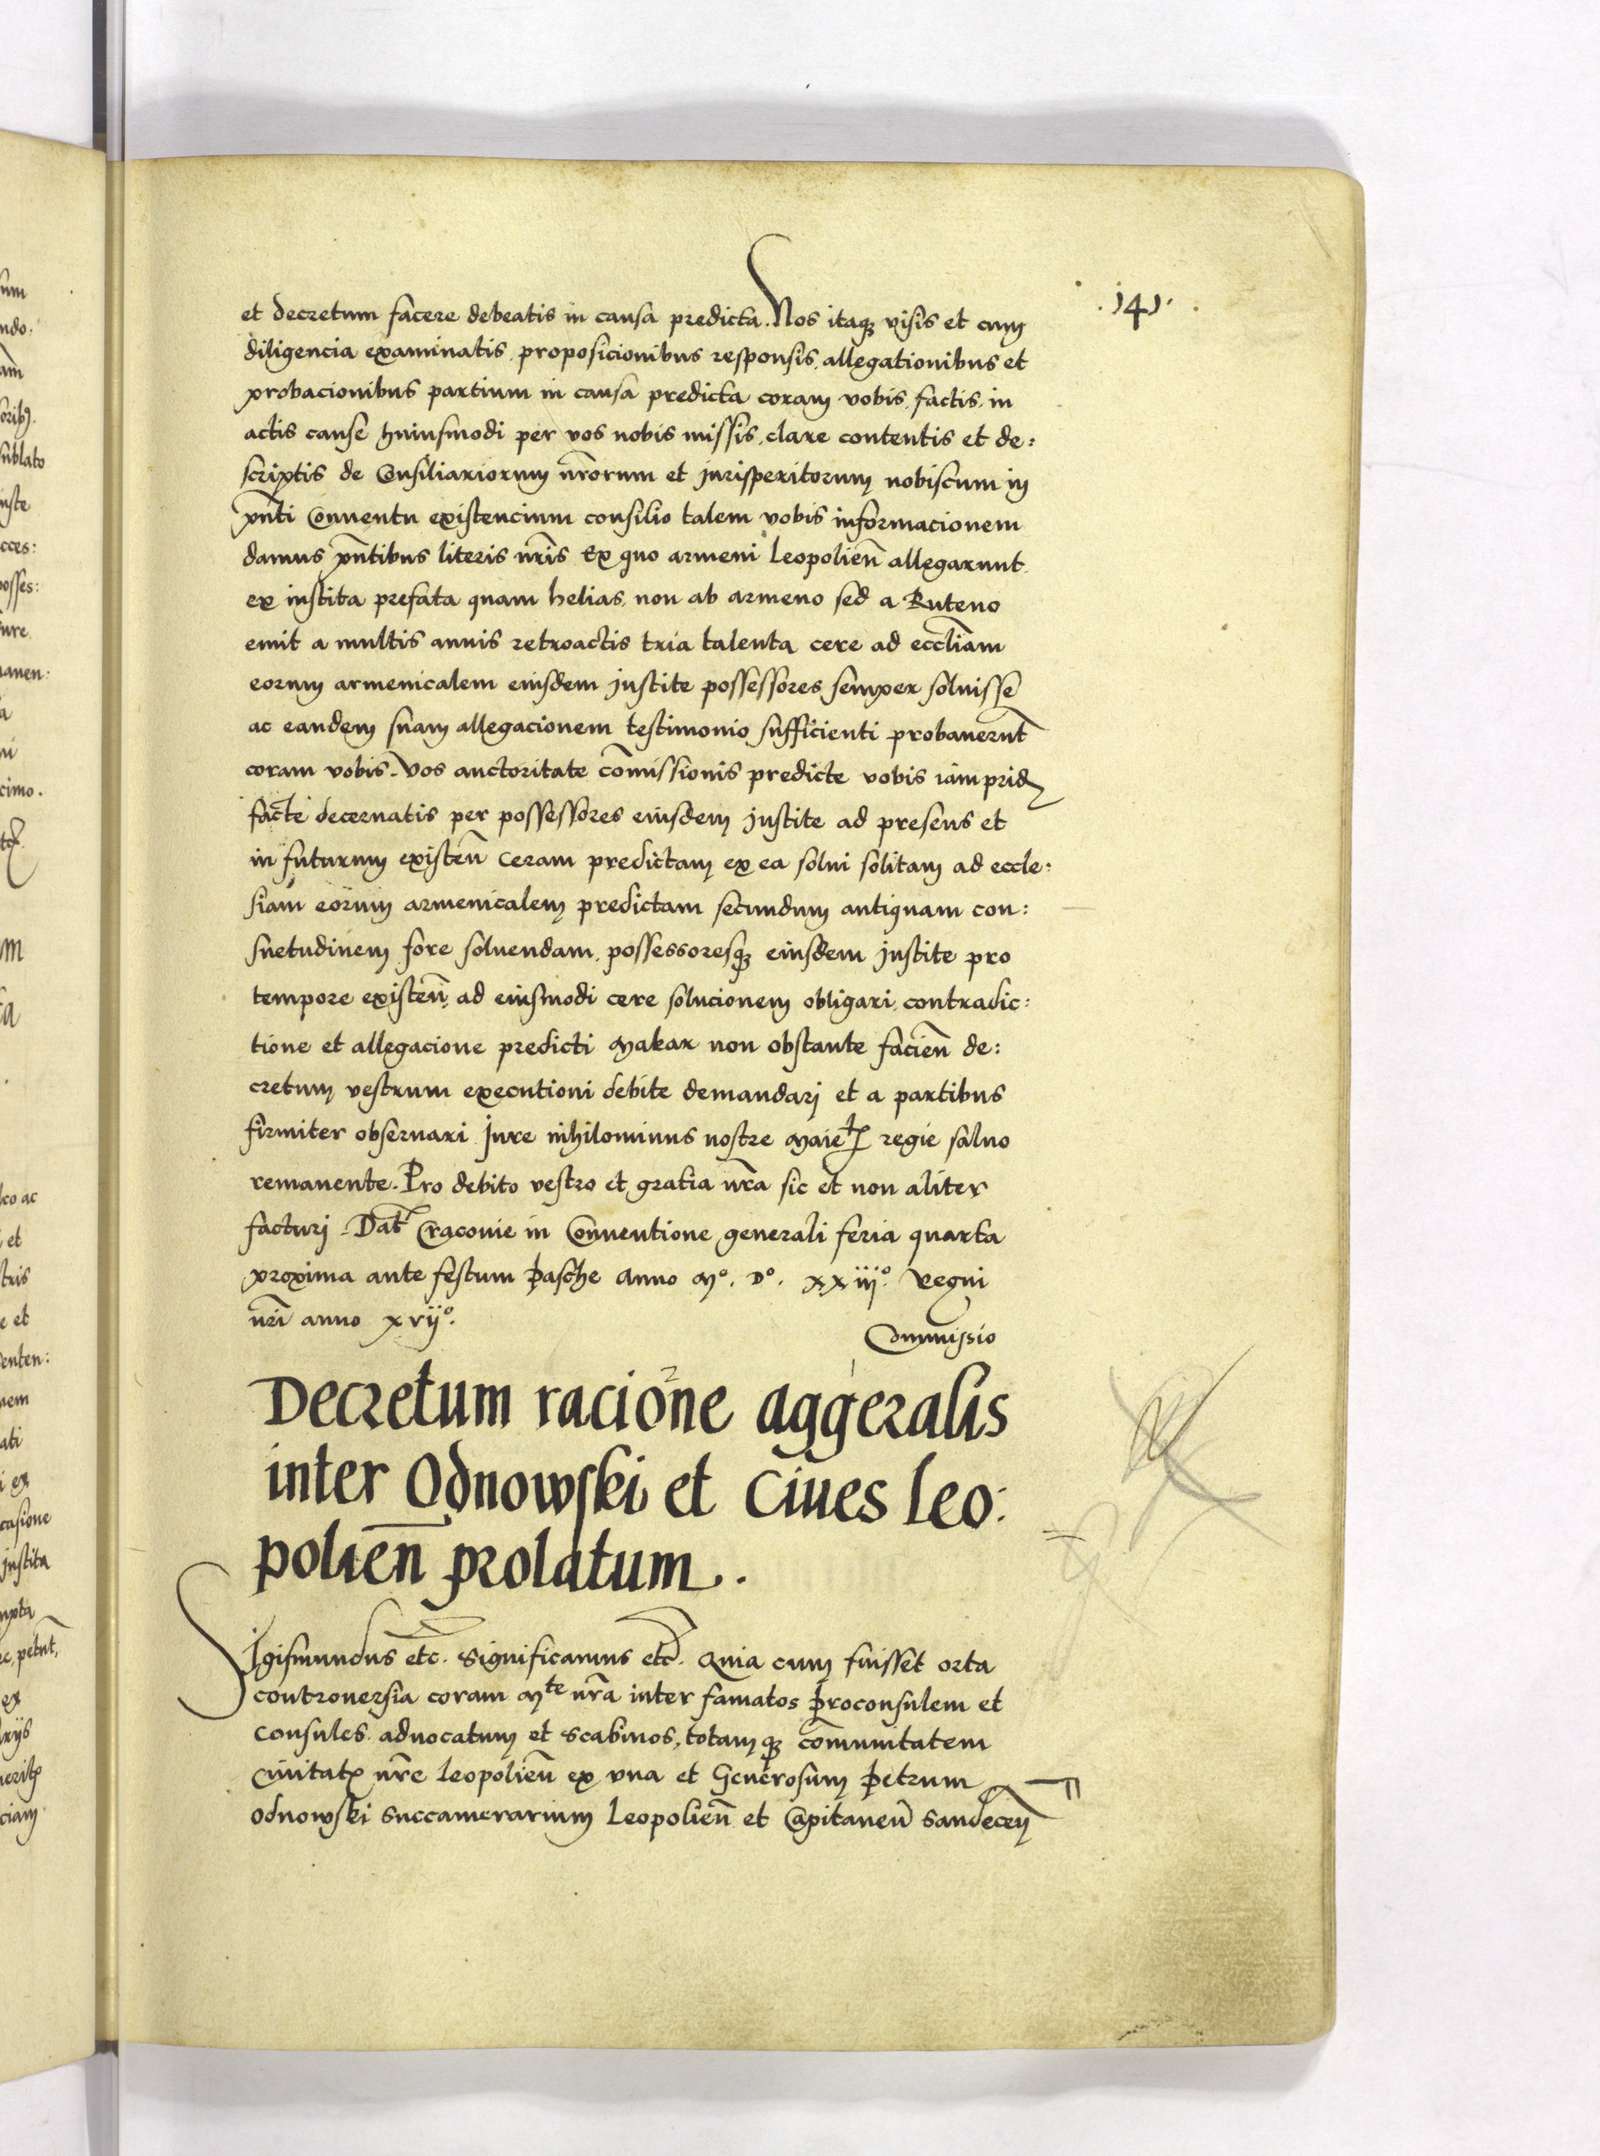 .141.
et decretum facere debeatis in causa predicta. Nos itaqꝫ visis et cum
diligencia examinatis proposicionibus responsis, allegationibus et
probacionibus partium in causa predicta coram vobis, factis, in
actis cause huiusmodi per vos nobis missis, clare contentis et de:
scriptis de Consiliariorum nr̃orum et Jurisperitorum nobiscum in
pñti Conuentu existencium consilio talem vobis informacionem
damus pñtibus literis nr̃is Ex quo armeni Leopolieñ allegarunt
ex instita prefata quam helias, non ab armeno sed a Ruteno
emit a multis annis retroactis tria talenta cere ad eccl̃iam
eorum armenicalem eiusdem Justite possessores semper soluisse
ac eandem suam allegacionem testimonio sufficienti probauerũt
coram vobis. Vos auctoritate com̃issionis predicte vobis iam prid
facte decernatis per possessores eiusdem Justite ad presens et
in futurum existeñ Ceram predictam ex ea solui solitam ad eccle:
siam eorum armenicalem predictam secundum antiquam con:
suetudinem fore soluendam, possessoresqꝫ eiusdem Justite pro
tempore existeñ, ad eiusmodi cere solucionem obligari, contradic:
tione et allegacione predicti Makar non obstante facieñ de:
cretum vestrum executioni debite demandari et a partibus
firmiter obseruari Jure nihilominus nostre Maietꝭ regie saluo
remanente. Pro debito vestro et gratia nr̃a sic et non aliter
facturi. Dat Cracouie in Conuentione generali feria quarta
proxima ante festum Pasche Anno Mº. Dº. xxiijº. Regni
nr̃i anno xvijº.
Commissio
Decretum racione aggeralis
inter Odnowski et Ciues Leo:
polieñ prolatum.
Sigismundus etc. Significamus etc. Quia cum fuisset orta
controuersia coram Mte nr̃a inter famatos Proconsulem et
Consules aduocatum et Scabinos, totamqꝫ com̃unitatem
Ciuitatꝭ nr̃e Leopolieñ ex vna et Generosum Petrum
Odnowski Succamerarium Leopolieñ et Capitaneũ Sandeceñ